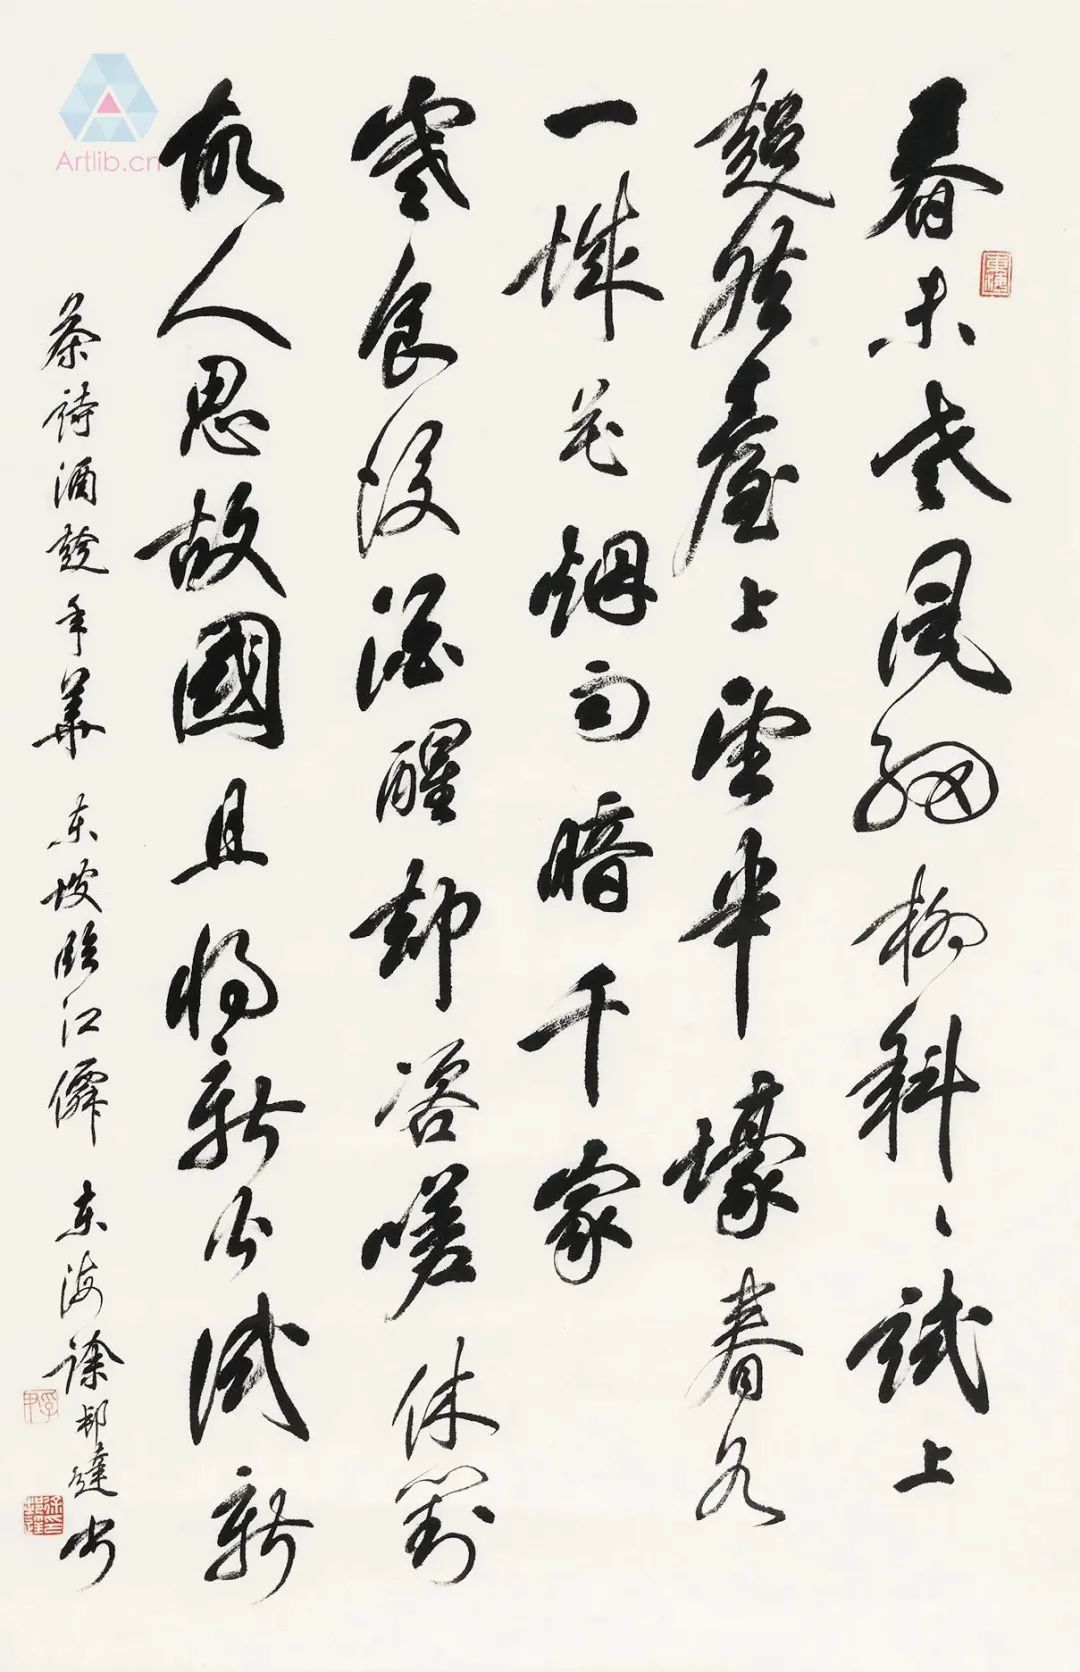 Artlib.cn
春未老風細柳斜〻試上
超然臺上望半壕春水
一城花烟雨暗千家
寒食後酒醒卻咨嗟休對
故人思故國且將新火試新
茶詩酒趁年華 東坡臨江僊 東海徐邦達書